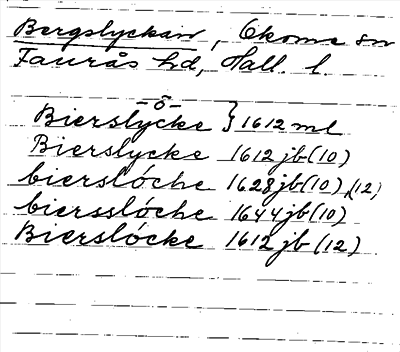 Bergslyckan, Okome sn
Faurås hd, Hall. l.
-ö-
Bierslycke } 1612 ml
Bierslycke 1612 jb (10)
bierslóche 1628 jb (10), (12)
biersslóche 1644 jb (10)
Bierslócke 1612 jb (12)